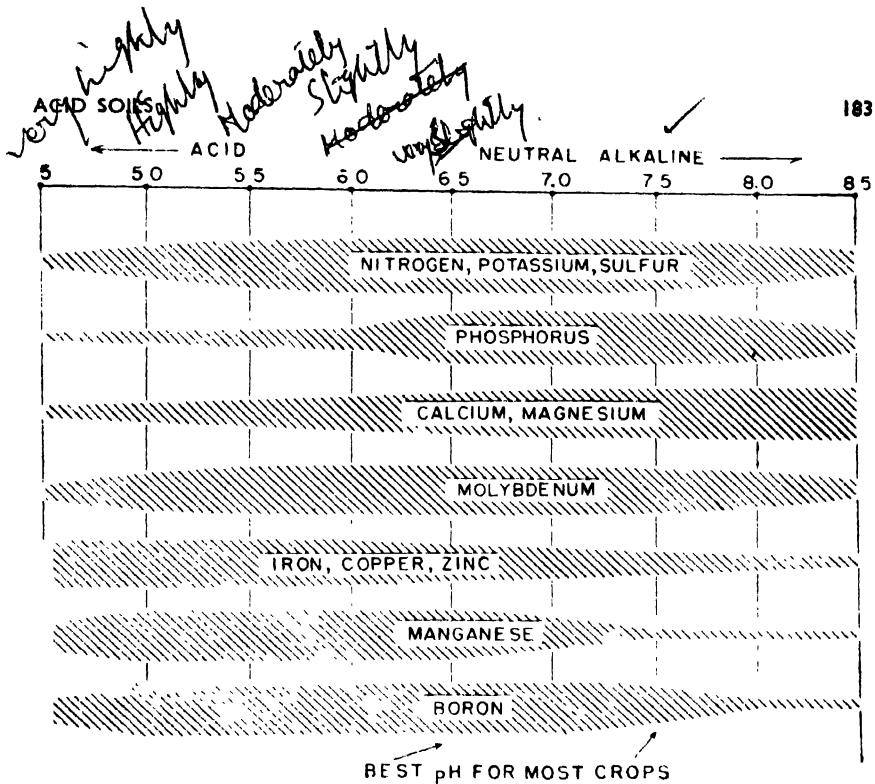 very highly
Highly
Moderately
Slightly
Moderately
very Slightly
ACID SOILS
183
ACID
NEUTRAL ALKALINE
5 5.0 5.5 6.0 6.5 7.0 7.5 8.0 8.5
NITROGEN, POTASSIUM, SULFUR
PHOSPHORUS
CALCIUM, MAGNESIUM
MOLYBDENUM
IRON, COPPER, ZINC
MANGANESE
BORON
BEST pH FOR MOST CROPS